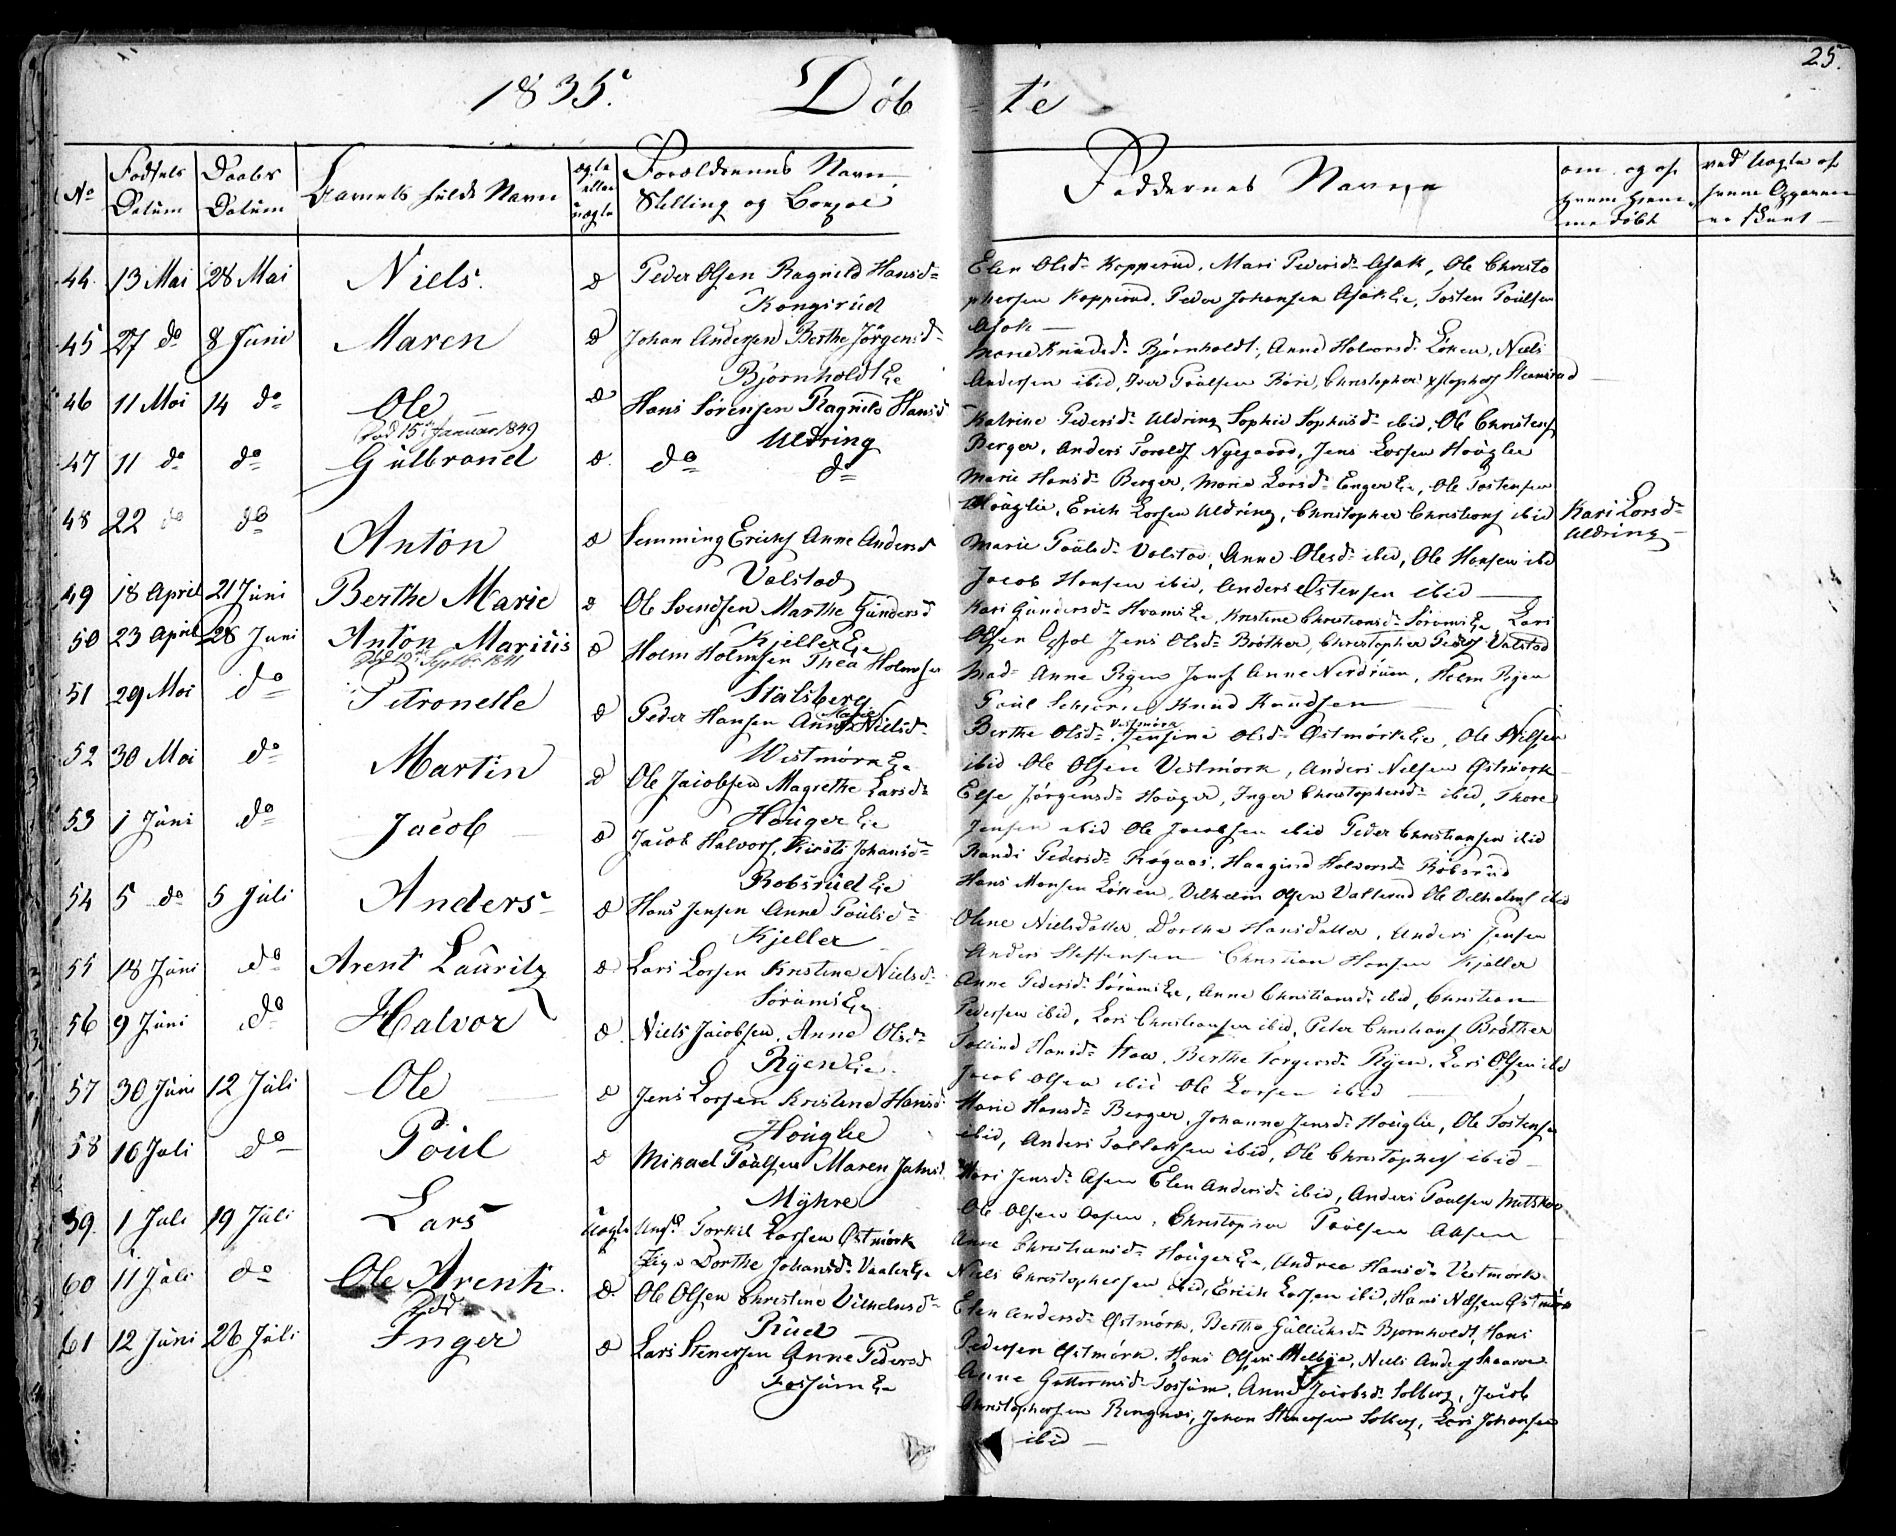 25.
1835. Døbte
No
Fødsels Datum
Daabs Datum
Barnets fulde Navn
ægte eller uægte
Forældrenes Navn, Stilling og Bopæl
Faddernes Navne
om og af hvem hjemmedøbt
44. 13 Mai 28 Mai Niels. Peder Olsen Ragnild Hansd:
Kongsrud
Elen Olsd: Kopperud, Mari Pedersd: Asak, Ole Christo
phersen Kopperud, Peder Johansen Asak Eie, Tosten Poulsen
Asak
45 27 do 8 Juni Maren Johan Andersen Berthe Jørgensd:
Bjørnholdt Eie
Marie Knudsd: Bjørnholdt, Anne Halvorsd: Løken, Niels
Andersen ibid, Iver Poulsen
46 11 Mai 14 do Ole Hans Sørensen Ragnild Hansd
Død 15de Januar 1849
Uldring
Katrine Pedersd: Uldring Sophie ibid, Ole Christens
Berger, Anders Nygaard, Jens Larsen Houglie
47 11 do do Gulbrand do do
Marie Hansd: Berger, Maria Larsd: Enger Eie, Ole Tostensen
Houglie, Erich Larsen Uldring, Christopher Christians ibid
Kari Larsd:
Uldring
48 22 do do Anton Lemming Erichs Anne Andersd
Valstad
Marie Poulsd: Valstad, Anne Olesd: ibid, Ole Hansen ibid
Jacob Hansen ibid, Anders Østensen ibid
49 18 April 21 Juni Berthe Marie Ole Svendsen Marthe Gundersd
Kjeller Eie
Kari Gundersd: Eie, Kristine Christiansd: Sørum Eie, Lars
Olsen Jens Olsd: Brøther, Christopher Peders Valstad
50 23 April 28 Juni Anton Marius Holm Holmsen Thea Holmsen
Død Septbr 1841
Stalsberg
Mad: Anne Ryen Jomf Anne Nerdrum, Holm Ryen
Poul Knud Knudsen
51 29 Mai do Petronelle Peder Hansen Anne Marie Nielsd:
Westmørk Eie
Berthe Olsd: Vestmørk, Jensine Olsd: Østmørk Eie, Ole Nilsen
ibid Ole Olsen Vestmørk, Anders Nilsen Østmørk
52 30 Mai do Martin Ole Jacobsen Magrethe Larsd:
Houger Eie
Else Jørgensd: Houger, Inger Christophersd: ibid, Thore
Jensen ibid Ole Jacobsen ibid Peder Christiansen ibid
53 1 Juni do Jacob Jacob Halvors, Kirsti Johansd:
Robsrud Eie
Randi Pedersd: Halvorsd: Robsrud
Hans Monsen Løken, Vilhelm Olsen Ole Vilhelms ibid
54 5 do 5 Juli Anders Hans Jensen Anne Poulsd:
Kjeller
Olene Nielsdatter, Dorthe Hansdatter, Anders Jensen
Anders Steffensen Christian Hansen Kjeller
55 18 Juni do Arent Lauritz Lars Larsen Kristine Nielsd:
Sørum Eie
Anne Pedersd: Sørum Eie, Anne Christiansd: ibid, Christian
Pedersen ibid, Lars Christiansen ibid, Peter Christians Brøther
56 9 Juni do Halvor Niels Jacobsen, Anne Olsd:
Ryen Eie
Hansd: Berthe Torgersd: Ryen, Lars Olsen ibid
Jacob Olsen ibid Ole Larsen ibid
57 30 Juni 12 Juli Ole Jens Larsen Kristine Hansd:
Houglie
Marie Hansd: Berger, Johanne Jensd: Houglie, Ole Tostensen
ibid, Anders Tollefsen ibid, Ole Christophers ibid
58 16 Juli do Poul Mikael Poulsen Maren
Myhre
Kari Jensd: Asen Elen Andersd: ibid, Anders Poulsen
Ole Olsen Aasen, Christopher Poulsen Aasen
59. 1 Juli 19 Juli Lars uægte Ungk: Torkil Larsen Østmørk
Pige Dorthe Johansd: Vaaler Eie
Anne Christiansd: Houger Eie, Andrea Hansd: Vestmørk
Niels Christophersen ibid, Erich Larsen ibid, Hans Nilsen Østmørk
60 11 Juli do Ole Arent. Ole Olsen Christine Vilhelmsd:
død
Rud
Elen Andersd: Østmørk, Berthe Gullichsd: Bjørnholdt, Hans
Pedersen Østmørk, Hans Olsen Melbye, Niels Anders
61 12 Juni 26 Juli Inger Lars Stenersen Anne Pedersd
Fossum Eie
Anne Guttormsd: Fossum, Anne Jacobsd: Solberg, Jacob
Christophersen Ringnes, Johan Stenersen Solberg, Lars Johansen
ibid